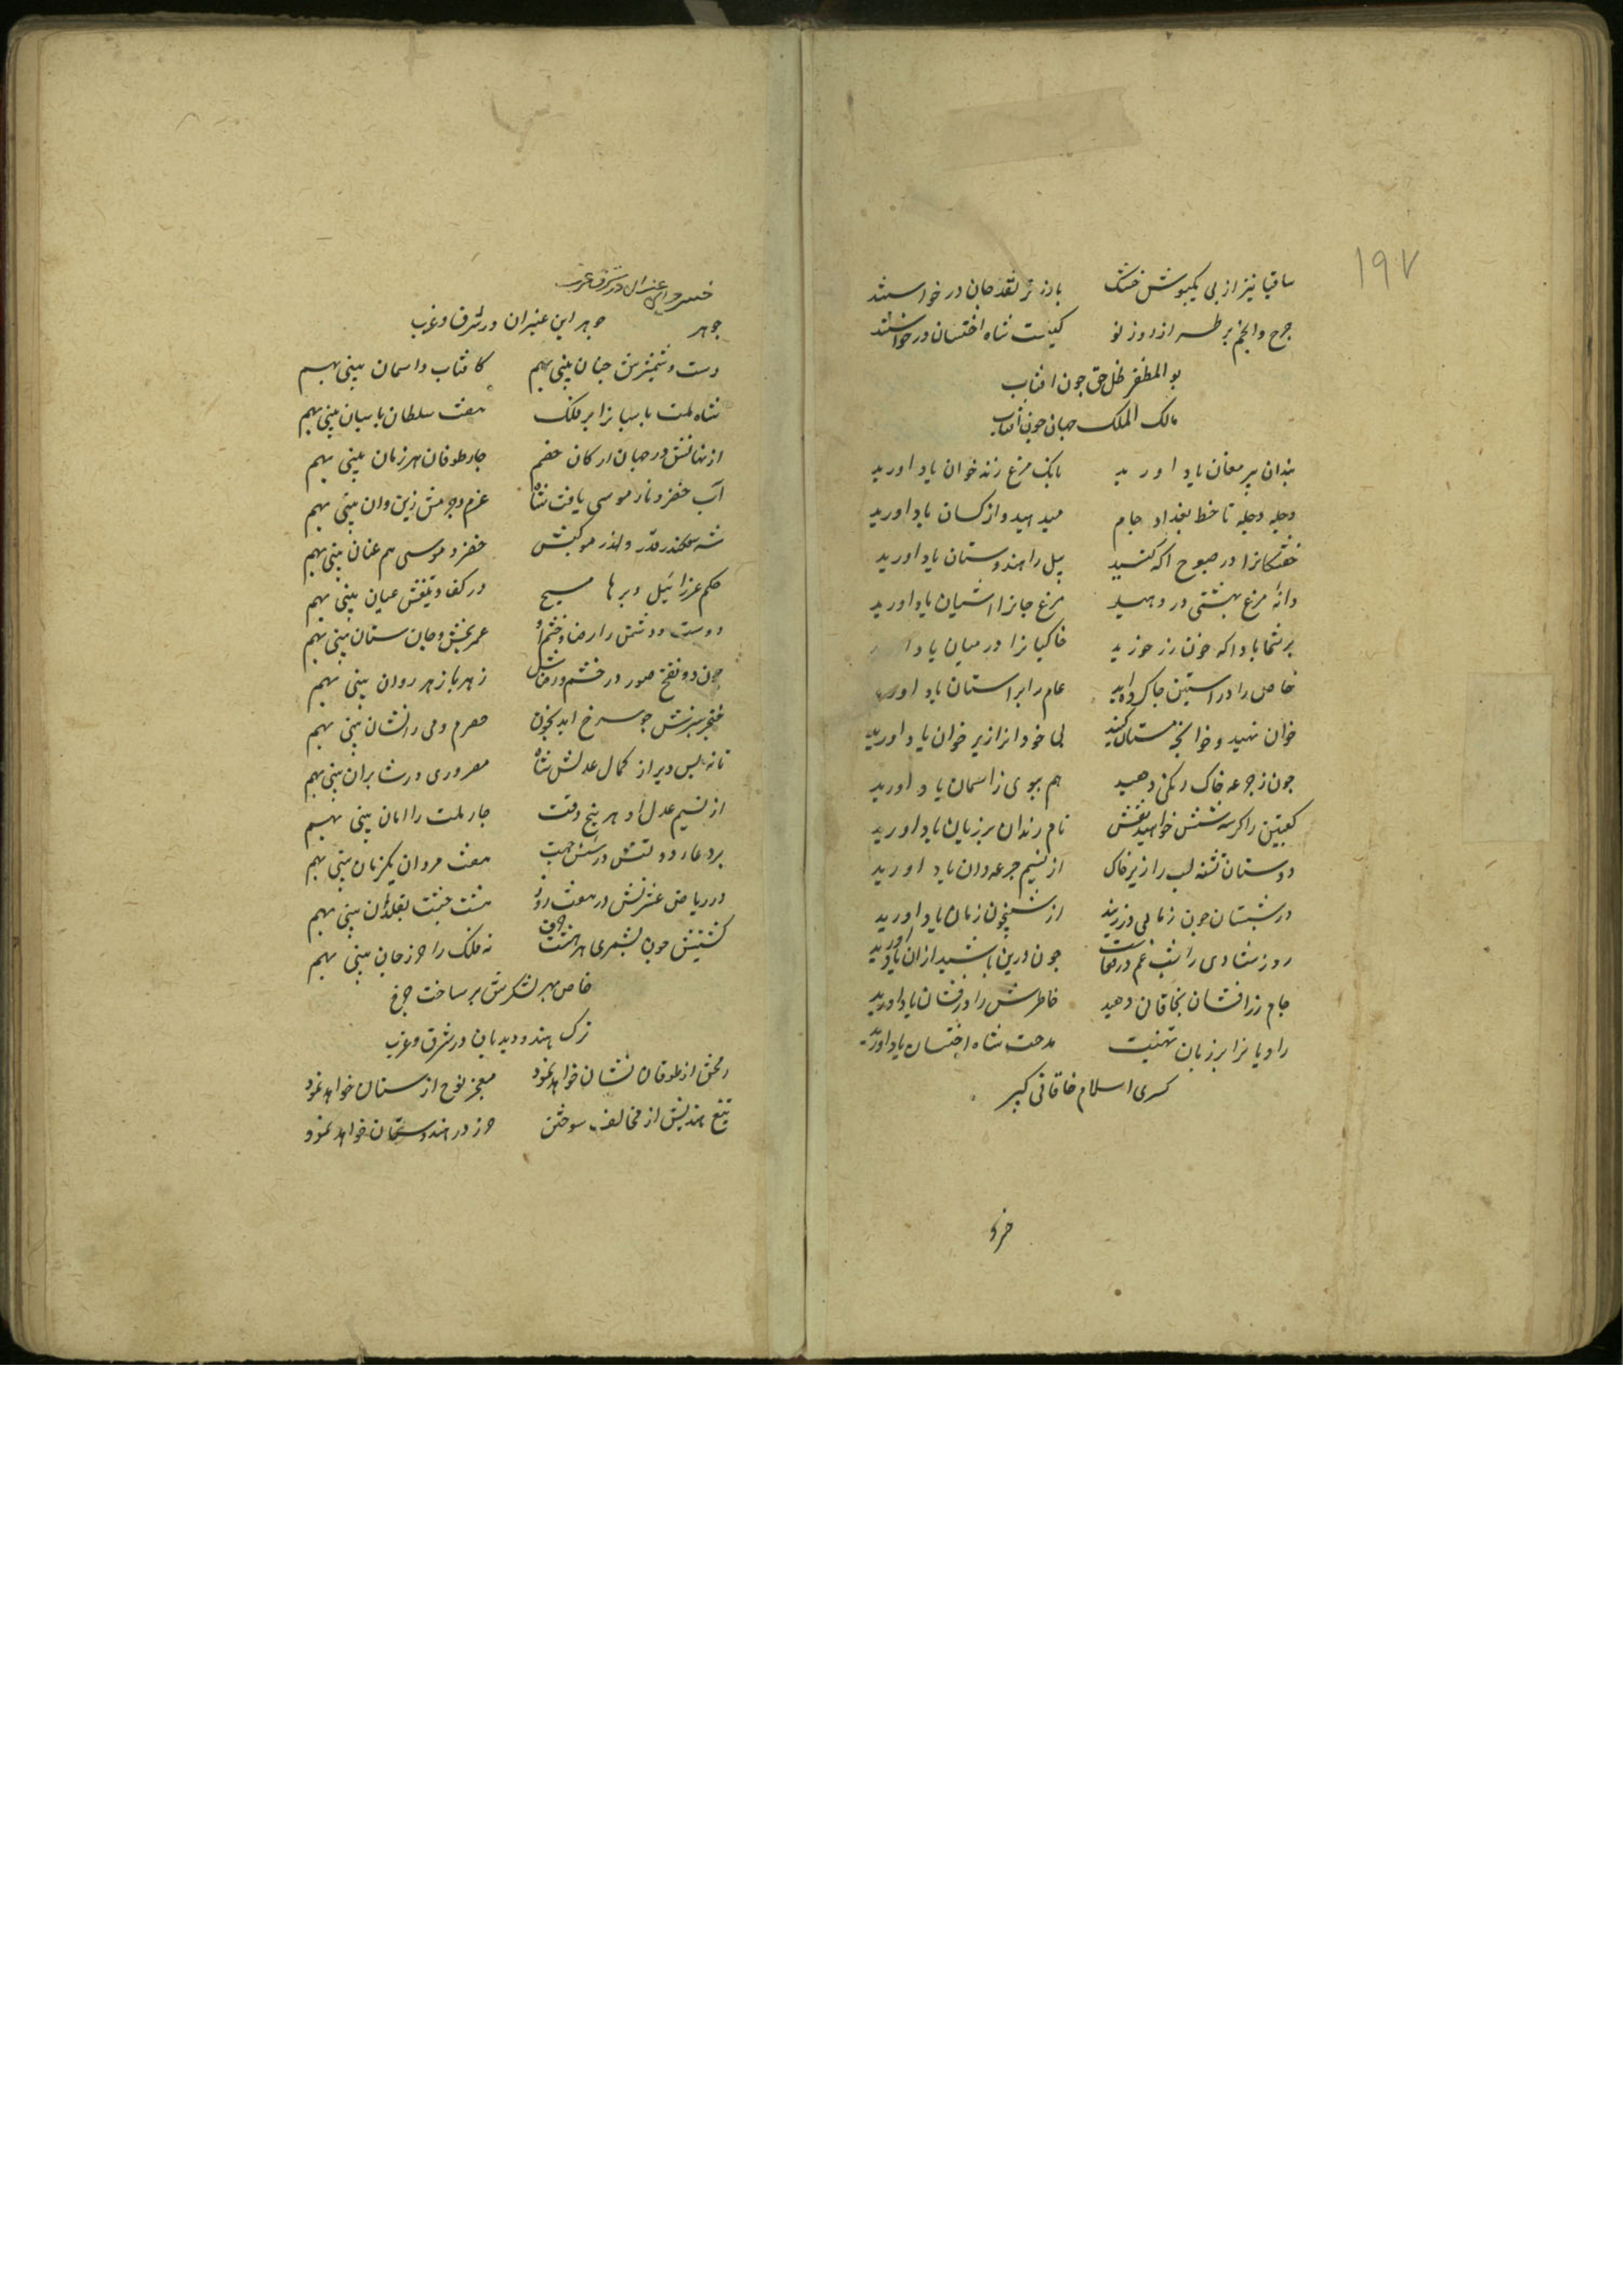 ۱۹۷
ساقیا نیز از بی یکبوش خشک باز تر نقد جان در خواستند
جرخ و انجم بر طراز روز نو کنیت شاه اختسان در خواستند
بو المظفر ظل حق جون افتاب
مالک الملک جهان جون افتاب
بندان پیر مغان یاد اورید بانک مرغ زند خوان یاد اورید
دجله دجله تا خط بغداد جام میدهید و از کسان یاد اورید
خفتکانرا در صبوح اکه کنید پیل را هندوستان یاد اورید
دانه مرغ بهشتی در دهید مرغ جانرا اشیان یاد اورید
بر شما باد اکه خون رز خورید خاکیانرا در میان یاد
خاص را در استین جا داده اید عام را بر استان یاد اورید
خوان نهید و خوانچه مستان کنید بی خودانرا زیر خوان یاد اورید
جون ز جرعه خاک رنکی دهید هم ببوی ز اسمان یاد اورید
کعبتین را کر سه شش خواهید نقش نام رندان بر زبان یاد اورید
دوستان تشنه لب را زیر خاک از نسیم جرعه دان یاد اورید
در شبستان جون زمانی در زمین از شبیخون زمان یاد اورید
روز شادی را شب غم در قفاست جون درین باشید ازان یاد اورید
جام زرافشان بخاقان دهید خاطرش را درفشان یاد اورید
راویانرا بر زبان تهنیت مدحت شاه اختسان یاد اورید
کسری اسلام خاقانی کبیر
خسرو
خسرو این عنبران در شرق و غرب
جوهر جوهر این عنبران در شرق و غرب
دست و شمشیرش جنان بینی بهم کافتاب و اسمان بینی بهم
شاه ملت بابیانرا بر فلک هفت سلطان باسبان بینی بهم
از نهانش در جهان ارکان خصم جار طوفان هر زمان بینی بهم
آب خضر و نار موسی یافت شاه عزم و جزمش زین و ان بینی بهم
شه سکندر قدر و اندر موکبش خضر و موسی هم عنان بینی بهم
حکم عزرائیل و برهان مسیح در کف و تیغش عیان بینی بهم
دوست و دشمن را رضا و خشم او عمر بخش و جان ستان بینی بهم
جون دو نفخ صور در خشم و رضاش زهر با زهر روان بینی بهم
خنجر سبزش جو سرخ اید بخون حصرم و می را نشان بینی بهم
تا نه بس دیر از کمال عدلش شاه مصر و ری در شابران بینی بهم
از نسیم عدل او هر پنج وقت جار ملت را امان بینی بهم
بر دعاء دولتش در شش جهت هفت مردان یکزمان بینی بهم
در ریاض عشرتش در هفت روز هشت جنت نقلدان بینی بهم
کنیتش جون بشمری هر هشت حرف نه فلک را حرز جان بینی بهم
خاص بهر لشکرش بر ساخت چرخ
ترک هندو دیدبان در شرق و غرب
رمحش از طوفان نشان خواهد نمود معجز نوح از سنان خواهد نمود
تیغ هندیش از مخالف سوختن حرز در هندوستان خواهد نمود